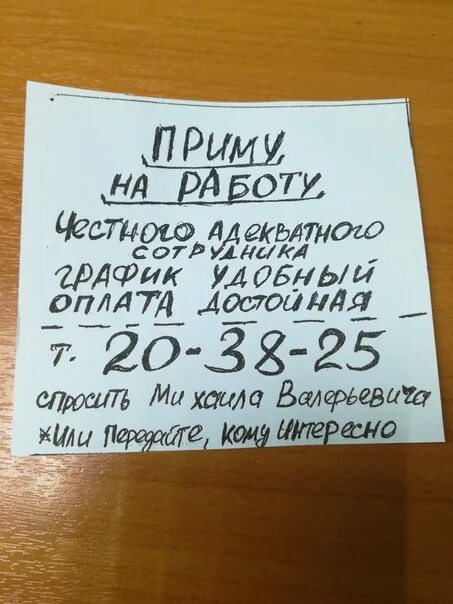 ПРИМУ
НА РАБОТУ
ЧЕСТНОГО АДЕКВАТНОГО
СОТРУДНИКА
ГРАФИК УДОБНЫЙ
ОПЛАТА ДОСТОЙНАЯ
Т. 20-38-25
спросить Михаила Валерьевича
*Или Передайте, кому интересно